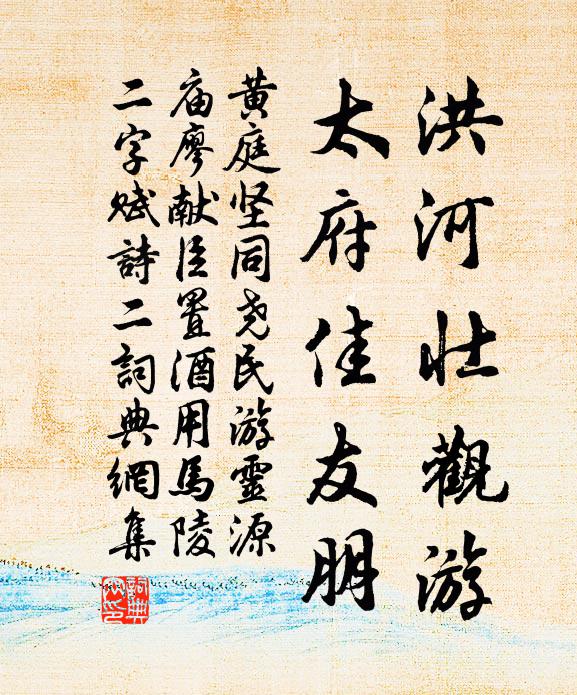 洪河壮觀游
太府佳友朋
黄庭坚同尧民游靈源
庙廖献臣置酒用馬陵
二字赋詩二詞典網集